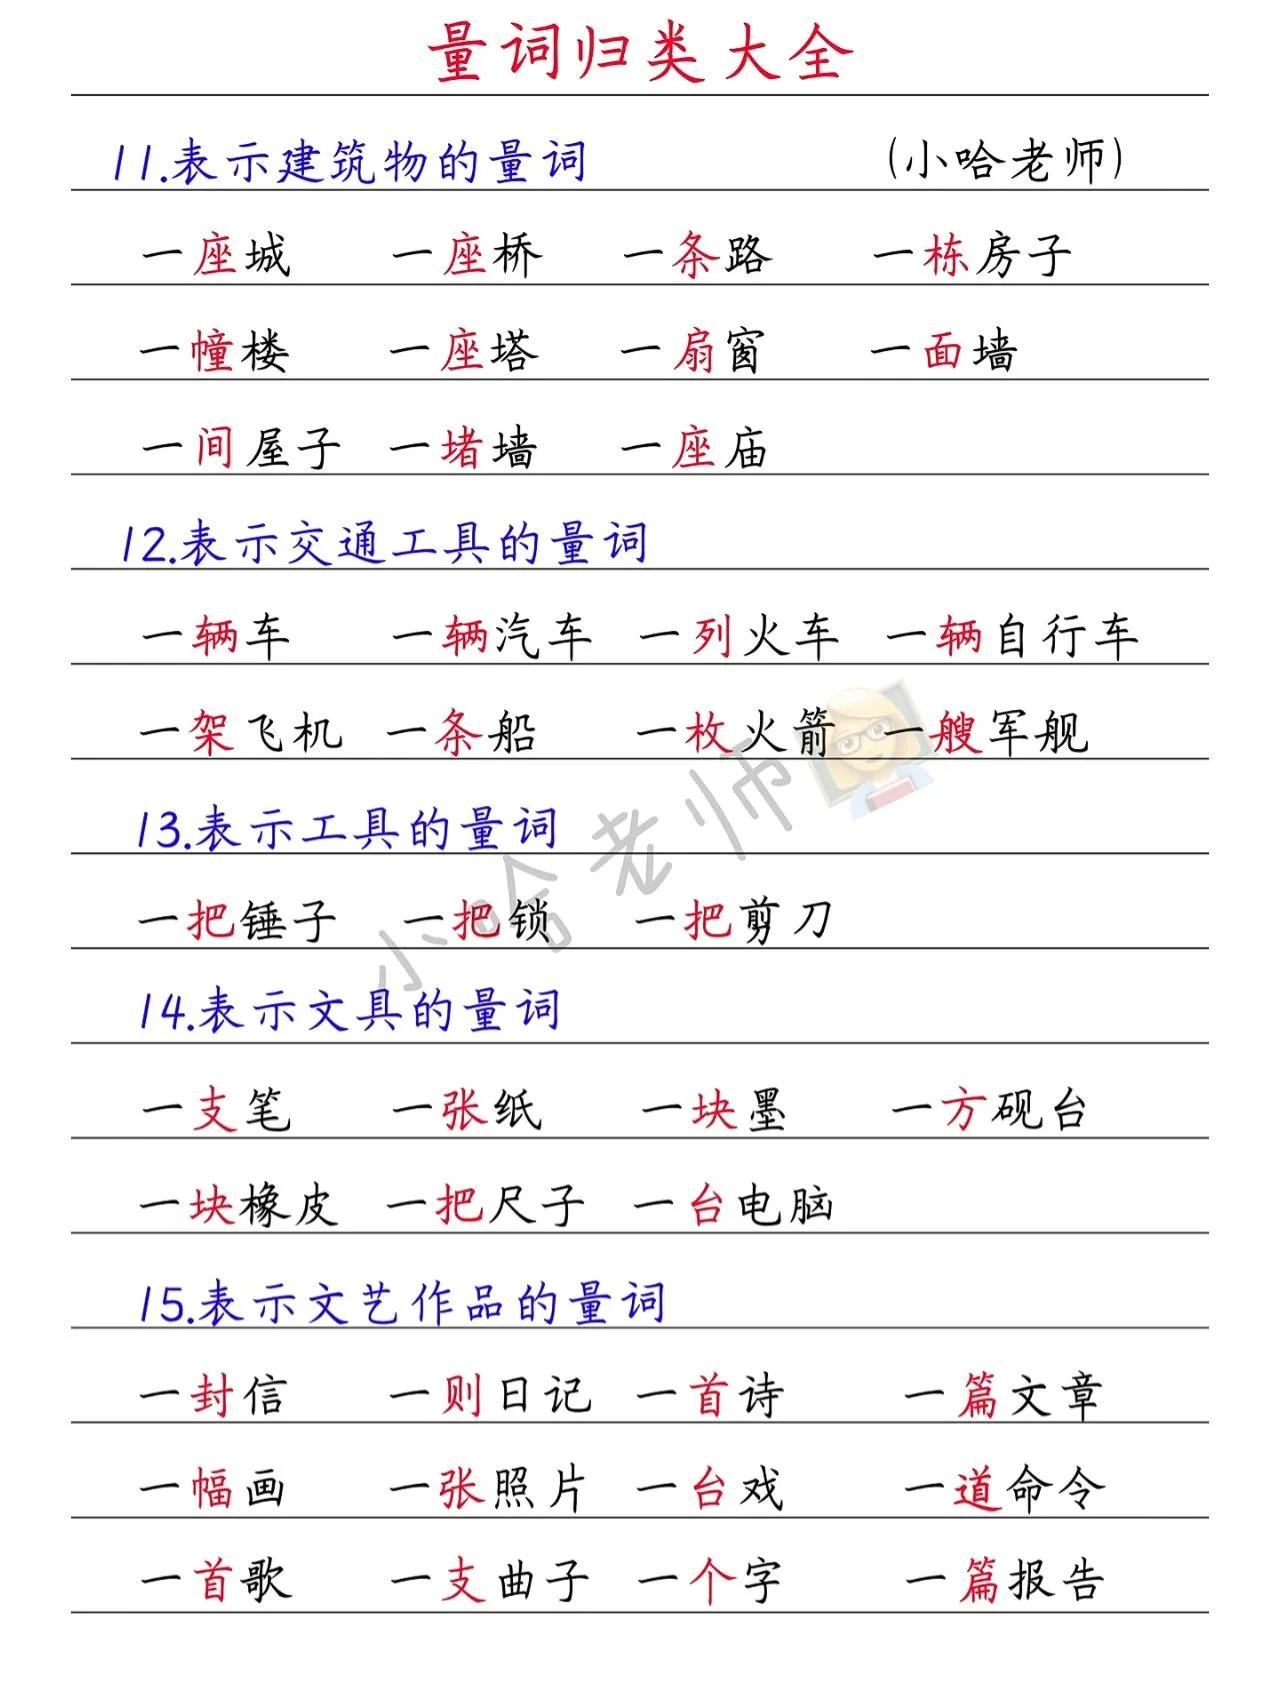 量词归类大全
11.表示建筑物的量词 (小哈老师)
一座城 一座桥 一条路 一栋房子
一幢楼 一座塔 一扇窗 一面墙
一间屋子 一堵墙 一座庙
12.表示交通工具的量词
一辆车 一辆汽车 一列火车 一辆自行车
一架飞机 一条船 一枚火箭 一艘军舰
13.表示工具的量词
一把锤子 一把锁 一把剪刀
小哈老师
14.表示文具的量词
一支笔 一张纸 一块墨 一方砚台
一块橡皮 一把尺子 一台电脑
15.表示文艺作品的量词
一封信 一则日记 一首诗 一篇文章
一幅画 一张照片 一台戏 一道命令
一首歌 一支曲子 一个字 一篇报告